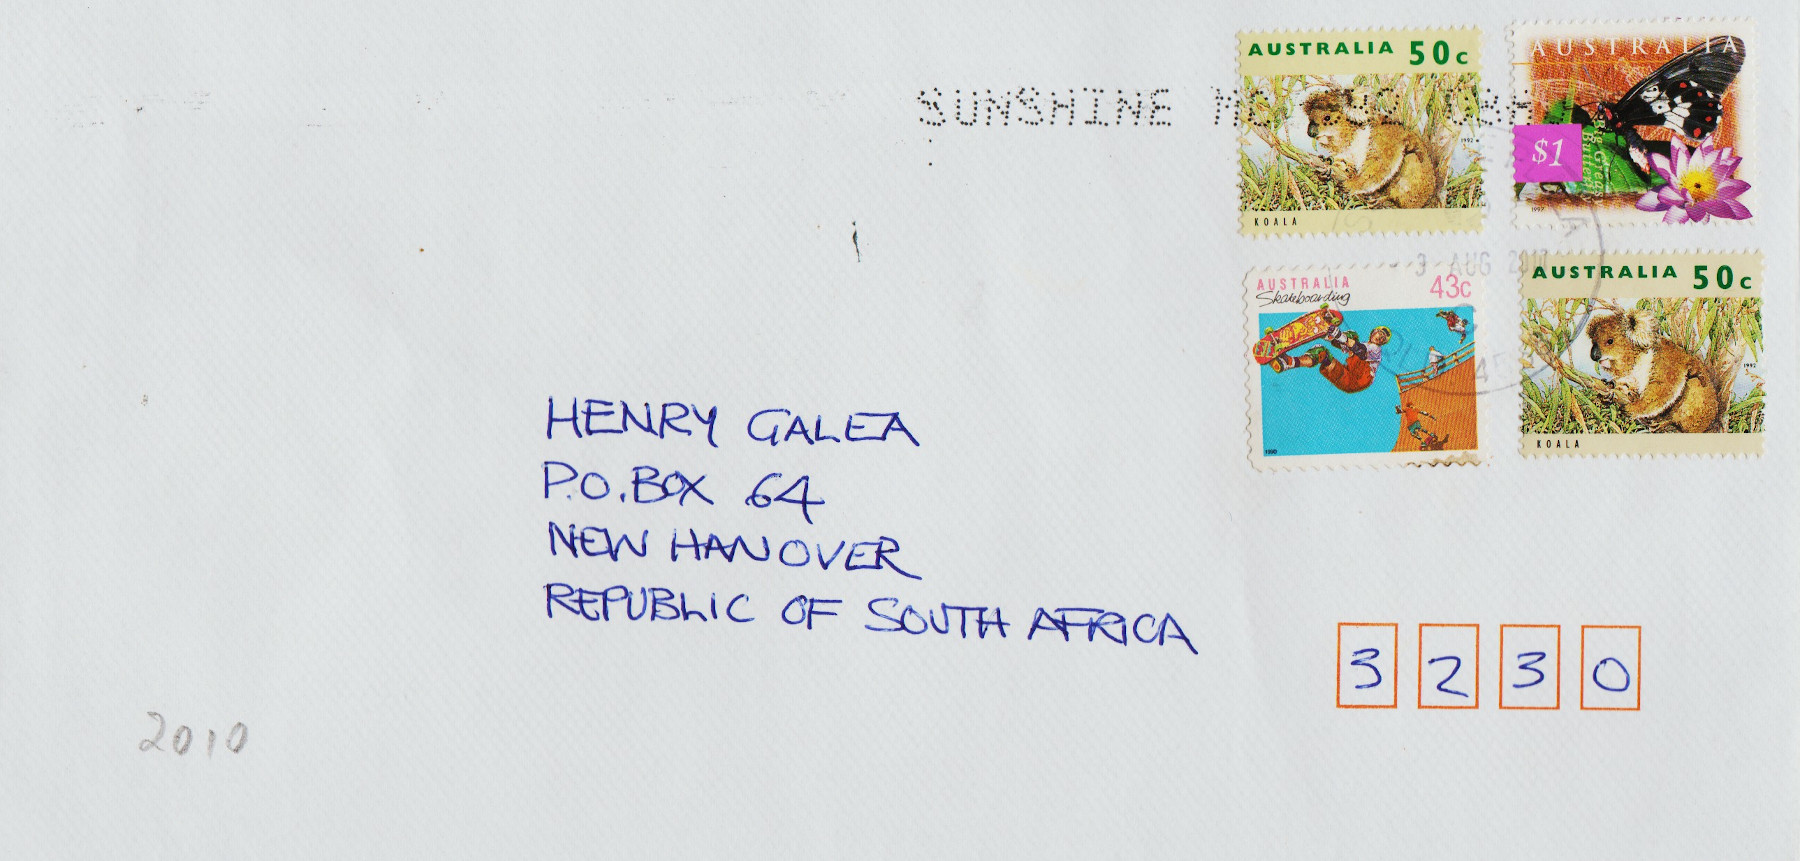 SUNSHINE
AUSTRALIA 50c
1992
KOALA
AUSTRALIA
$1
1997
3 AUG 2010
AUSTRALIA 43c
Skateboarding
1990
AUSTRALIA 50c
1992
KOALA
HENRY GALEA
P.O. BOX 64
NEW HANOVER
REPUBLIC OF SOUTH AFRICA
3230
2010